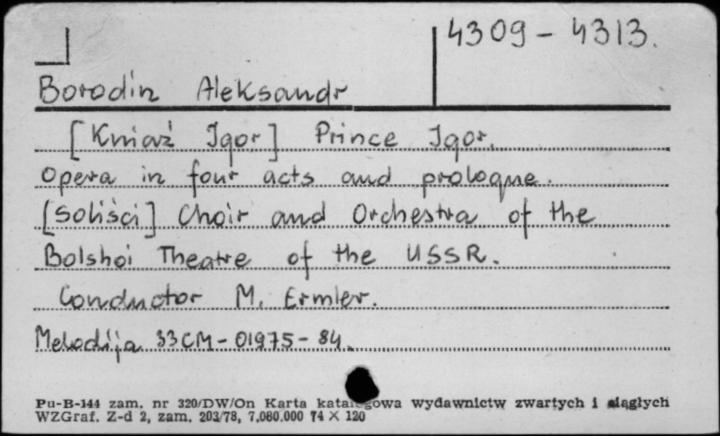 4309 - 4313.
Borodin Aleksandr
[Kniaź Igor] Prince Igor.
Opera in four acts and prologue.
[Soliści] Choir and Orchestra of the
Bolshoi Theatre of the USSR.
Conductor M. Ermler.
Melodija 33CM-01975-84.
Pu-B-144 zam. nr 320/DW/On Karta katalogowa wydawnictw zwartych i ciągłych
WZGraf. Z-d 2, zam. 203/78, 7,080.000 74 × 120